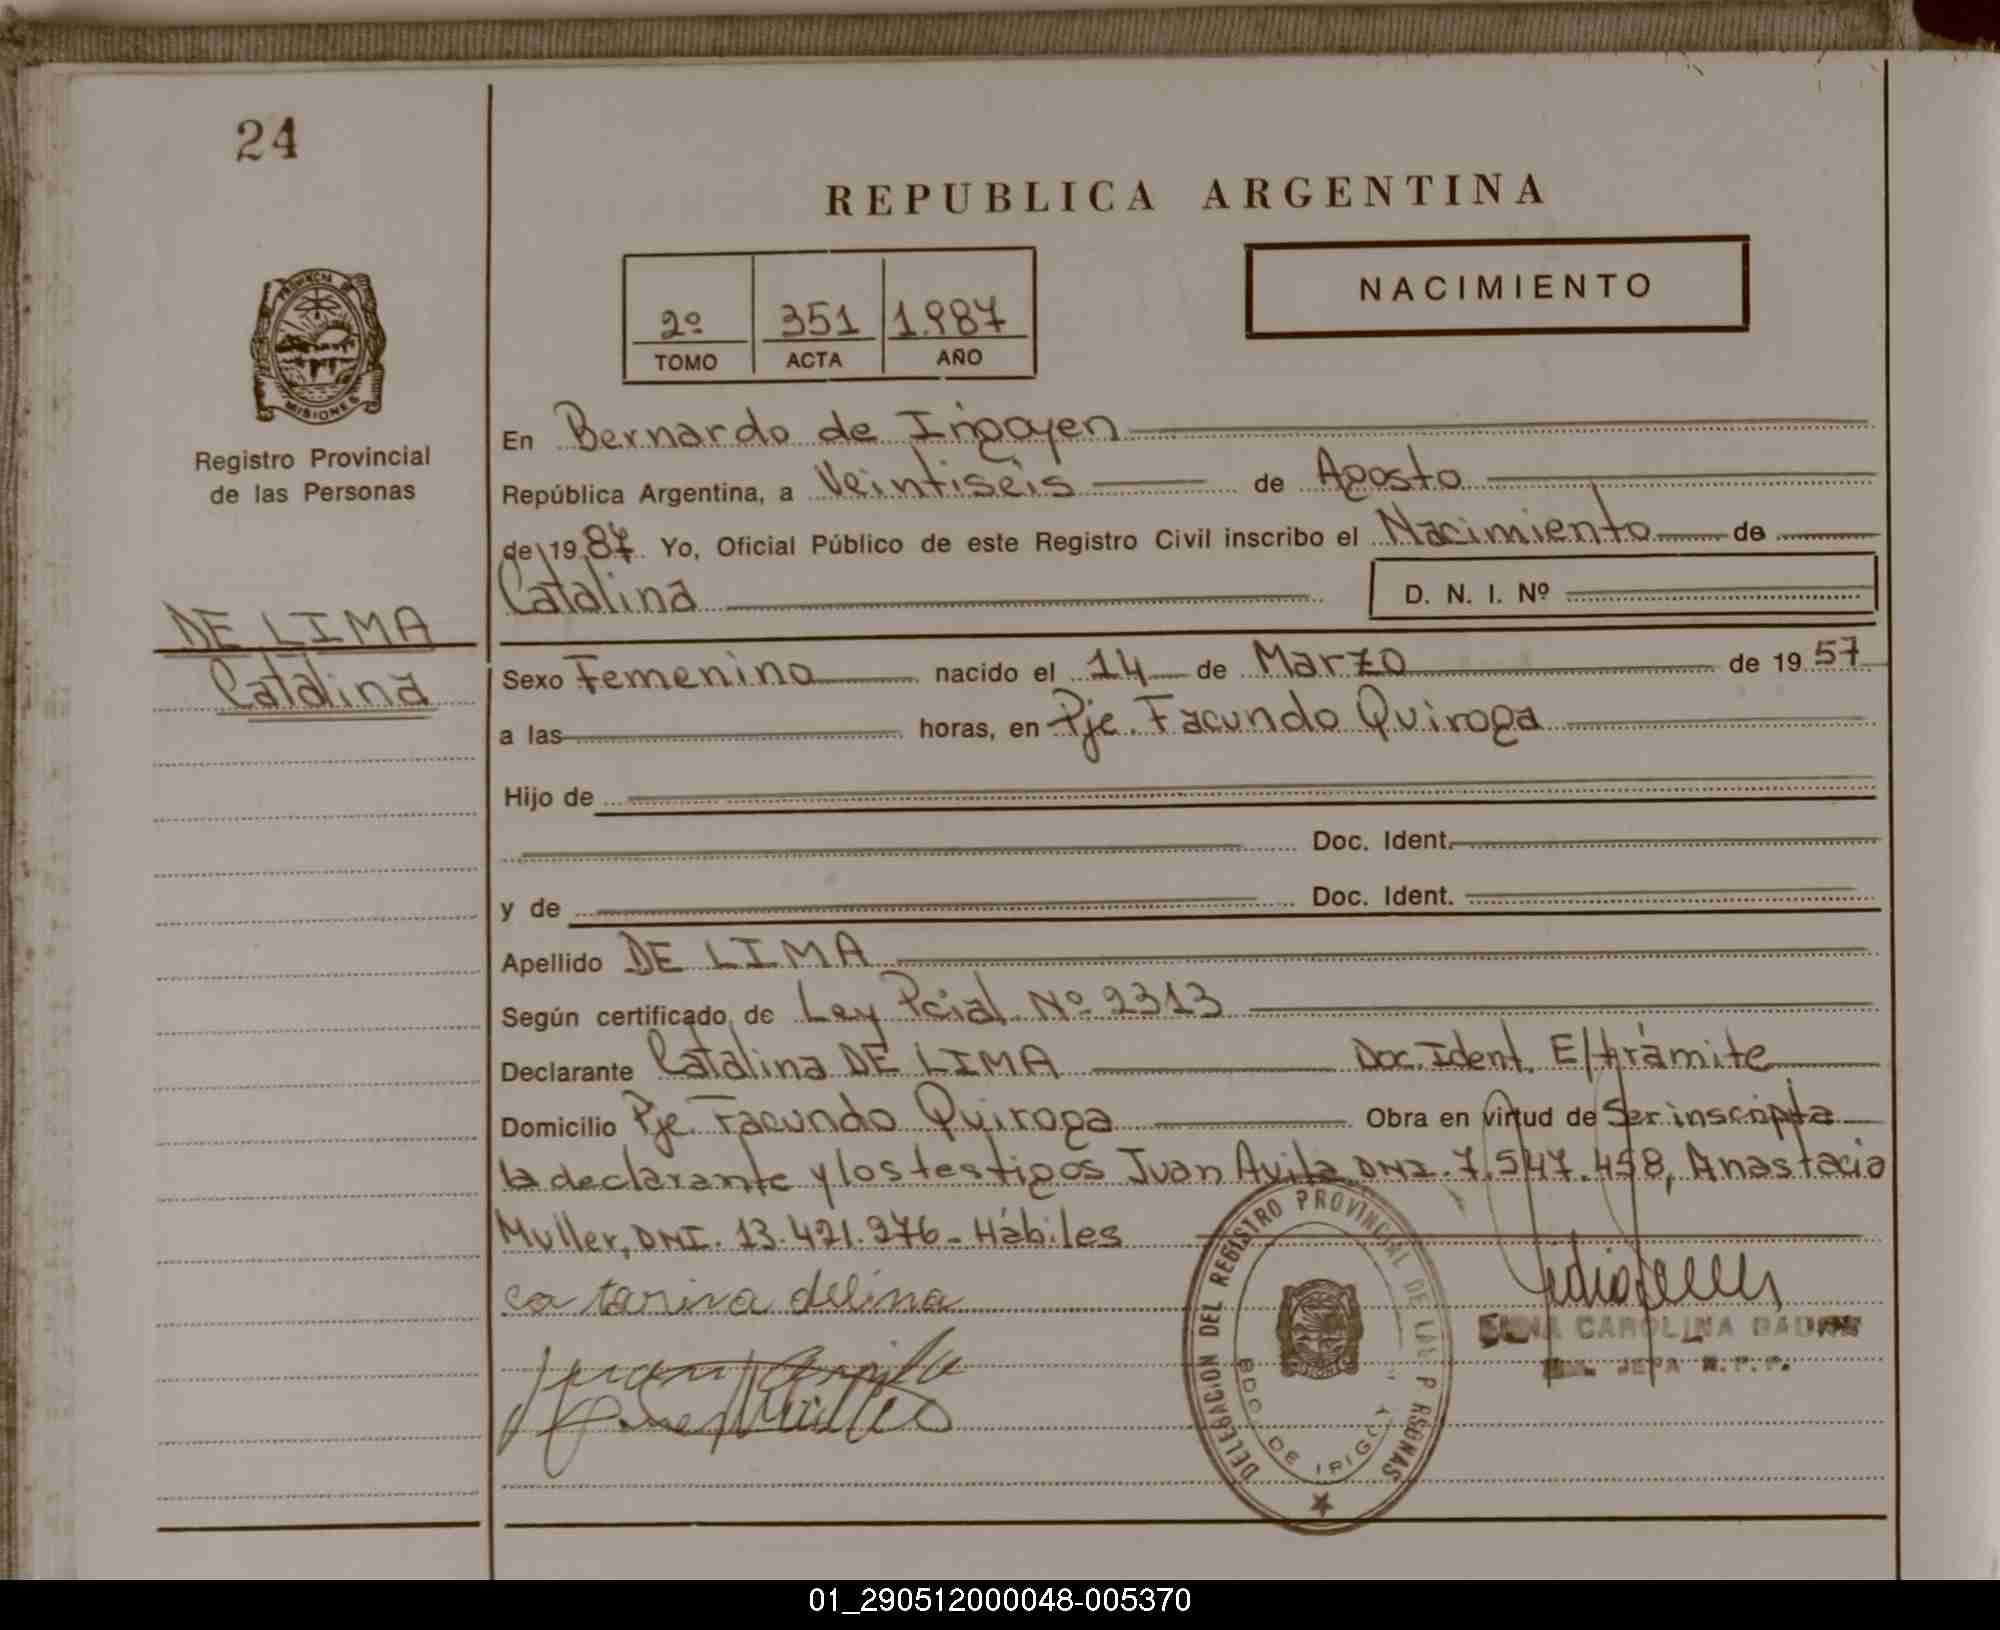 24
REPUBLICA ARGENTINA
NACIMIENTO
2º 351 1.987
TOMO ACTA AÑO
PROVINCIA DE
MISIONES
Registro Provincial
de las Personas
DE LIMA
Catalina
En Bernardo de Irigoyen
República Argentina, a Veintiseis de Agosto
de 19 87 Yo, Oficial Público de este Registro Civil inscribo el Nacimiento de
Catalina D. N. I. Nº
Sexo Femenino nacido el 14 de Marzo de 19 57
a las horas, en Pje. Facundo Quiroga
Hijo de
Doc. Ident.
y de Doc. Ident.
Apellido DE LIMA
Según certificado de Ley Pcial Nº 2313
Declarante Catalina DE LIMA Doc. Ident. E/trámite
Domicilio Pje. Facundo Quiroga Obra en virtud de Ser inscripta
la declarante y los testigos Juan Avila DNI. 7.547.458, Anastacia
Muller, DNI. 13.421.276 - Hábiles
ca tarina delima
DELEGACION DEL REGISTRO PROVINCIAL DE LAS P RSONAS
BDO. DE IRIGOY
CAROLINA
JEFA R.P.P.
01_290512000048-005370